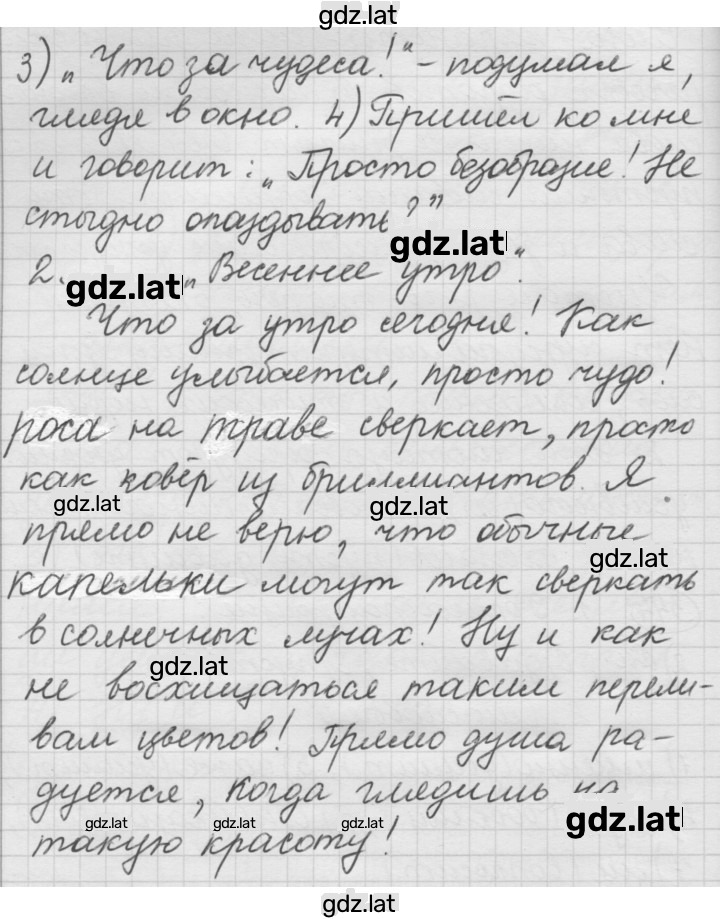 gdz.lat
3) „Что за чудеса!“ – подумал я,
глядя в окно. 4) Пришёл ко мне
и говорит: „Просто безобразие! Не
стыдно опаздывать?”
gdz.lat
2. gdz.lat „Весеннее утро“.
Что за утро сегодня! Как
солнце улыбается, просто чудо!
роса на траве сверкает, просто
как ковёр из бриллиантов. Я
gdz.lat gdz.lat
прямо не верю, что обычные
gdz.lat
капельки могут так сверкать
в солнечных лучах! Ну и как
gdz.lat
не восхищаться таким перели-
вам цветов! Прямо душа ра-
дуется, когда глядишь на
gdz.lat gdz.lat gdz.lat gdz.lat
такую красоту!
gdz.lat